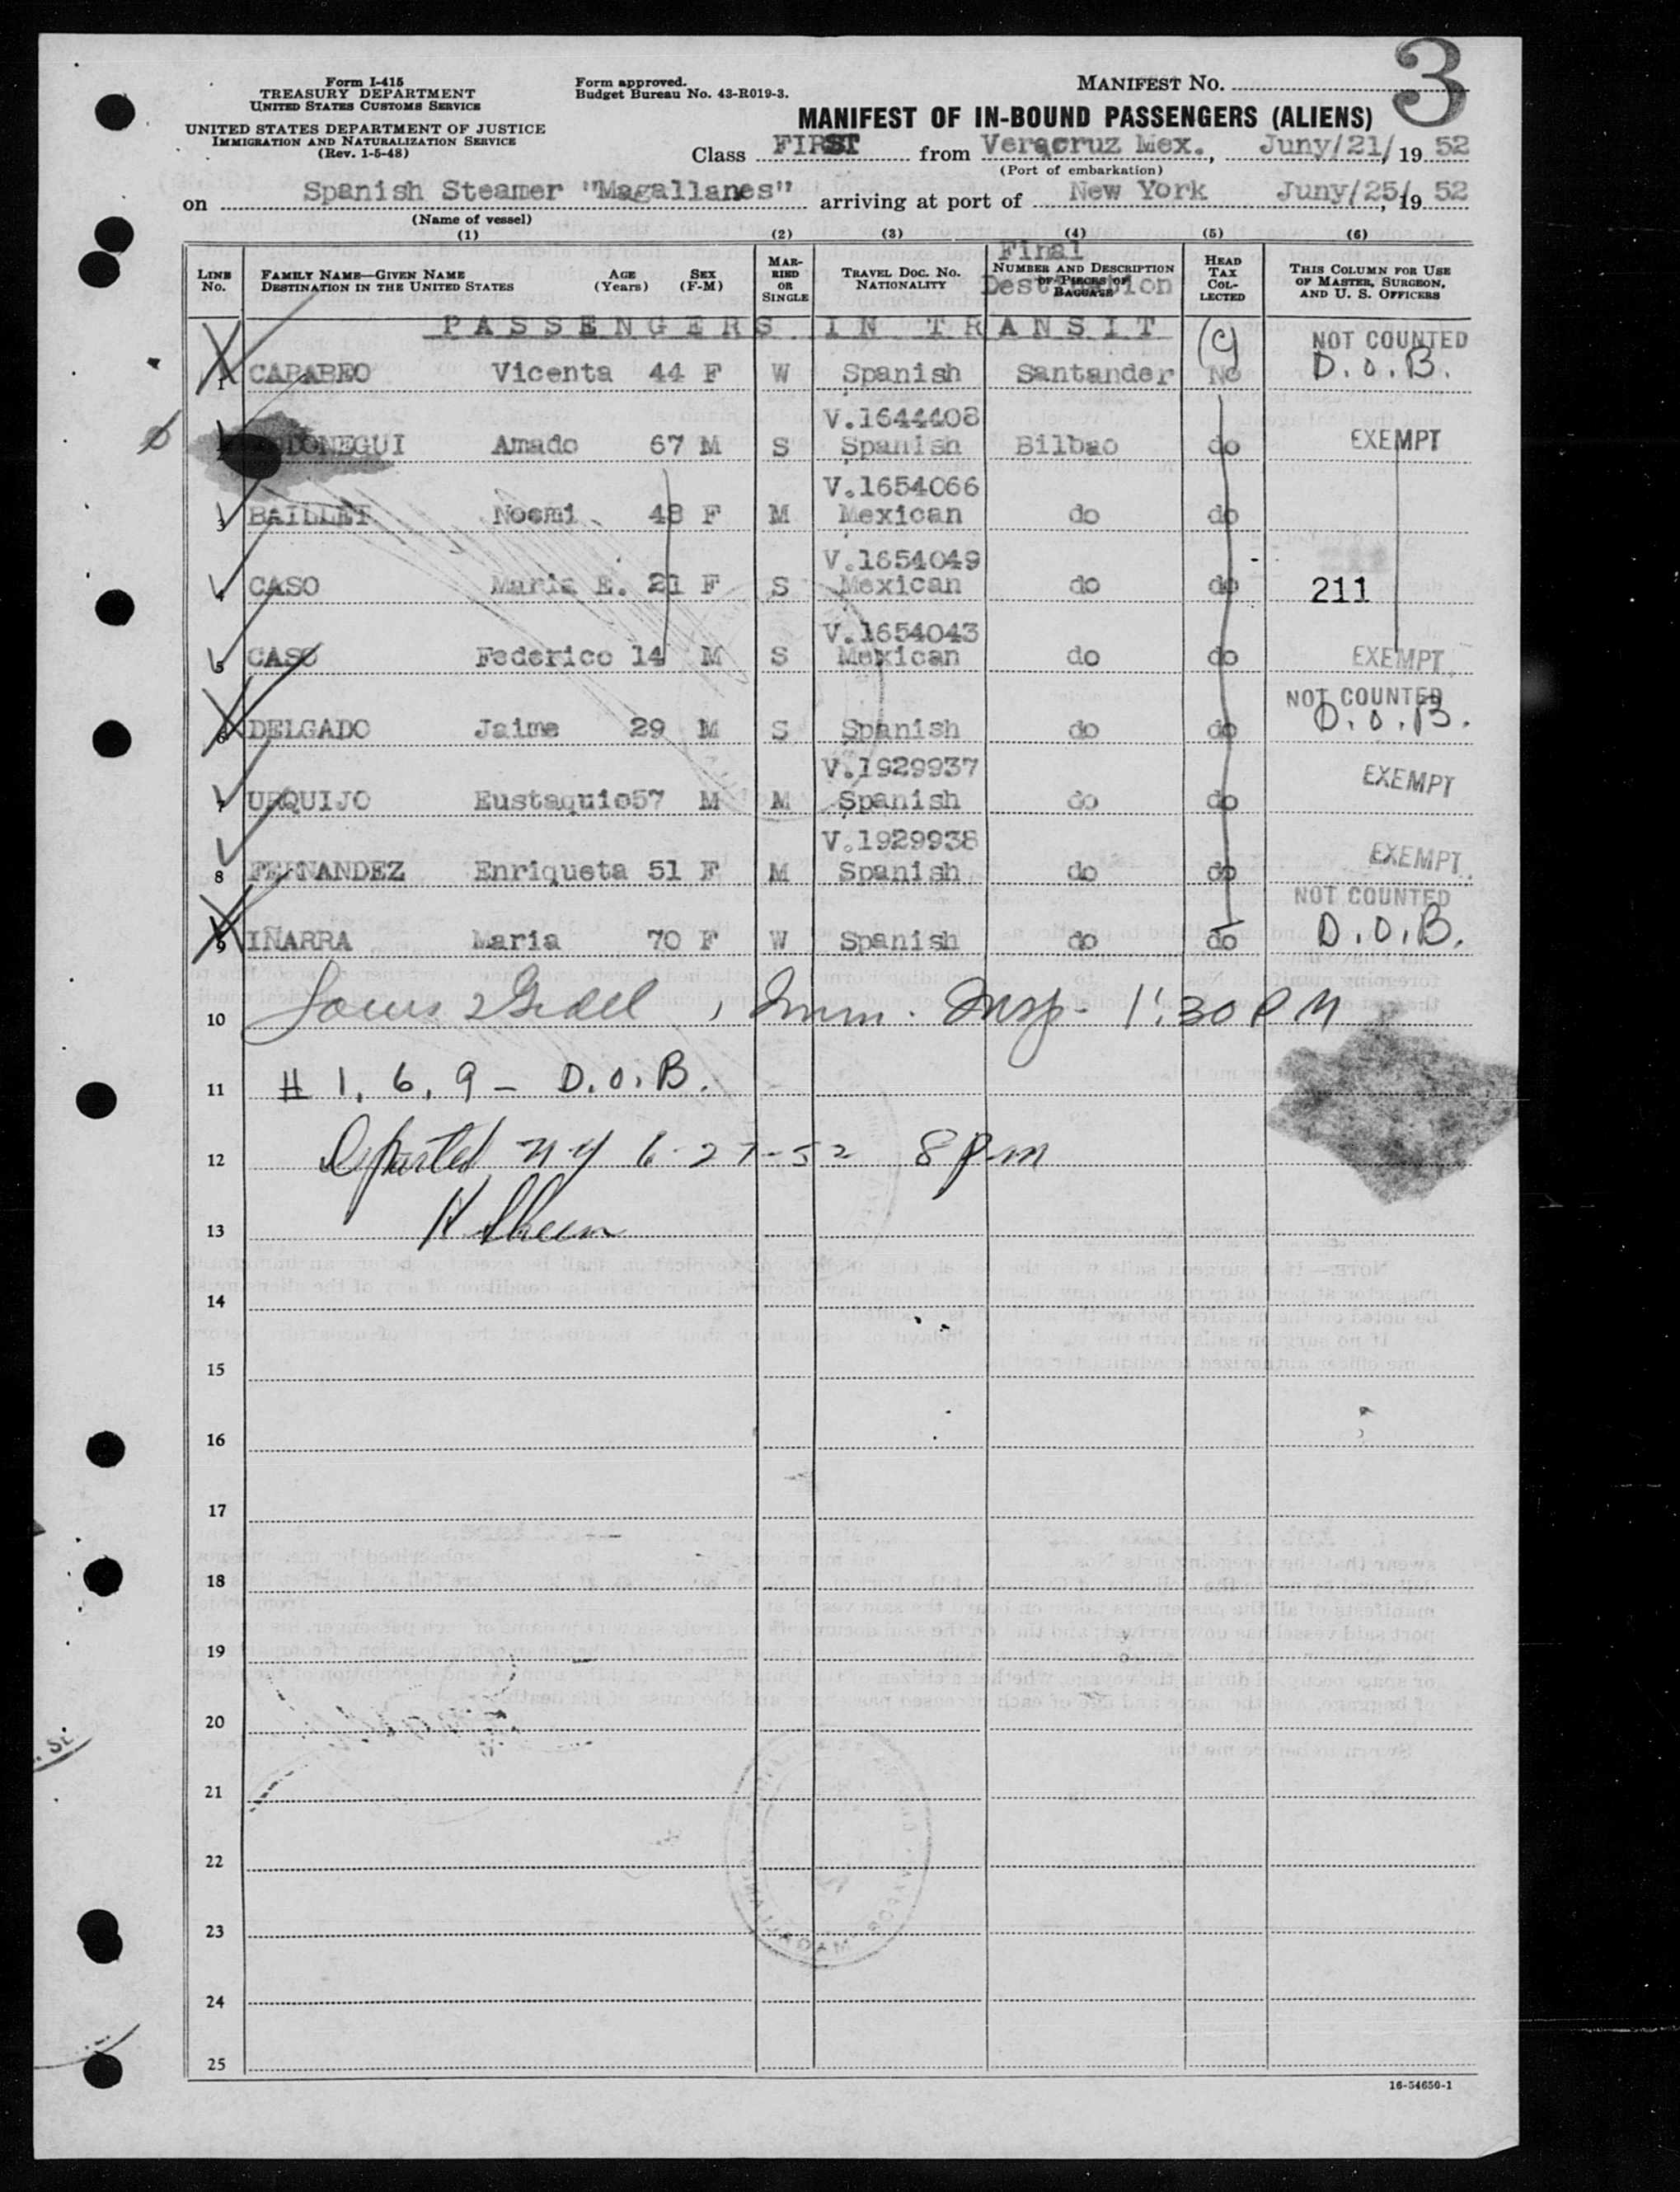 3
Form I-415
TREASURY DEPARTMENT
UNITED STATES CUSTOMS SERVICE
UNITED STATES DEPARTMENT OF JUSTICE
IMMIGRATION AND NATURALIZATION SERVICE
(Rev. 1-5-48)
Form approved.
Budget Bureau No. 43-R019-3.
MANIFEST NO.
MANIFEST OF IN-BOUND PASSENGERS (ALIENS)
Class FIRST from Veracruz Mex., Juny/21/ 19 52
(Port of embarkation)
on Spanish Steamer "Magallanes" arriving at port of New York Juny/25/, 19 52
(Name of vessel)
(1) (2) (3) (4) (5) (6)
LINE No. FAMILY NAME—GIVEN NAME DESTINATION IN THE UNITED STATES AGE (Years) SEX (F-M) MARRIED OR SINGLE TRAVEL DOC. NO. NATIONALITY NUMBER AND DESCRIPTION OF PIECES OF BAGGAGE Final Destination HEAD TAX COLLECTED THIS COLUMN FOR USE OF MASTER, SURGEON, AND U. S. OFFICERS
PASSENGERS IN TRANSIT
(9) NOT COUNTED
1 CARABEO Vicenta 44 F W Spanish Santander No D.O.B.
V.1644408
DONEGUI Amado 67 M S Spanish Bilbao do EXEMPT
V.1654066
3 BAILLET Noemi 48 F M Mexican do do
V.1654049
4 CASO Maria E. 21 F S Mexican do do 211
V.1654043
5 CASO Federico 14 M S Mexican do do EXEMPT
NOT COUNTED
6 DELGADO Jaime 29 M S Spanish do do D.O.B.
V.1929937
7 URQUIJO Eustaquio 57 M M Spanish do do EXEMPT
V.1929938
8 FERNANDEZ Enriqueta 51 F M Spanish do do EXEMPT
NOT COUNTED
9 IÑARRA Maria 70 F W Spanish do do D.O.B.
10 Imm. Insp. 1:30 PM
11 # 1, 6, 9 — D.O.B.
12 Departed NY 6-27-52 8 pm
13
14
15
16
17
18
19
20
21
22
23
24
25
16-54650-1